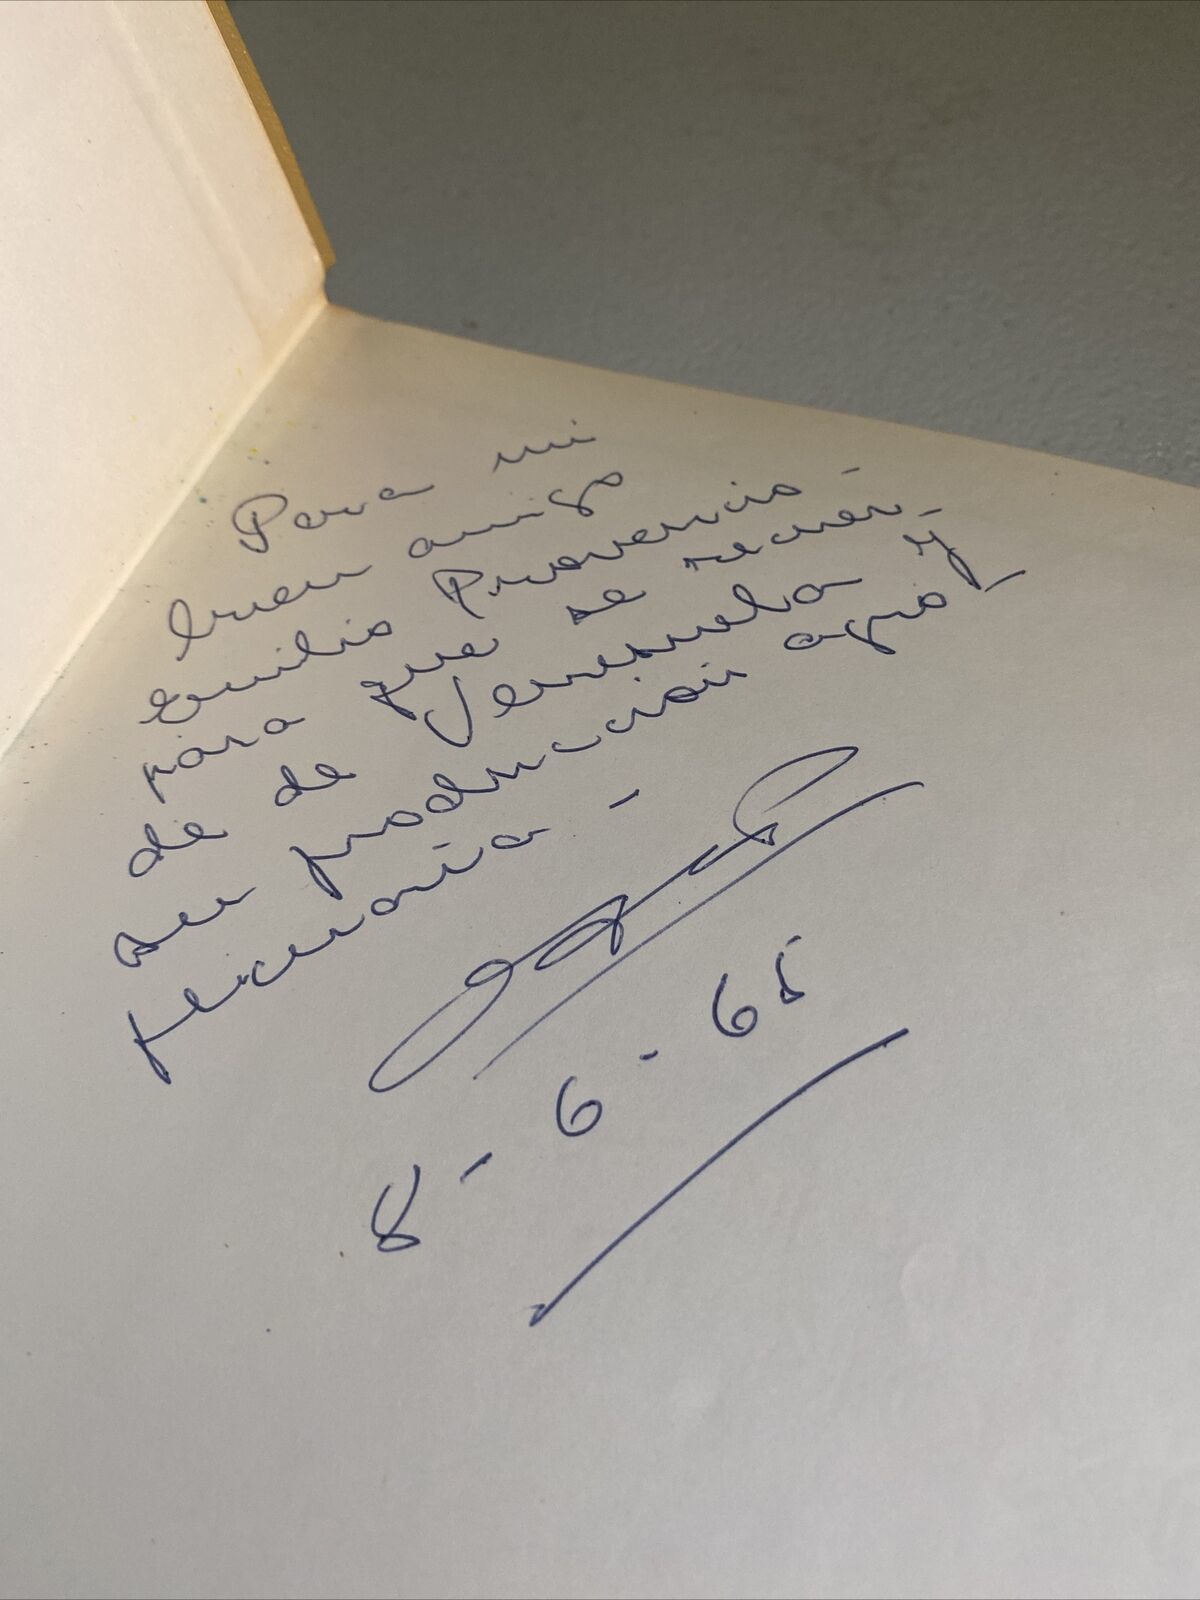 Para mi
buen amigo
Emilio Provencio -
para que se recuer-
de de Venezuela y
su producción agro/
pecuaria -
8 - 6 - 65